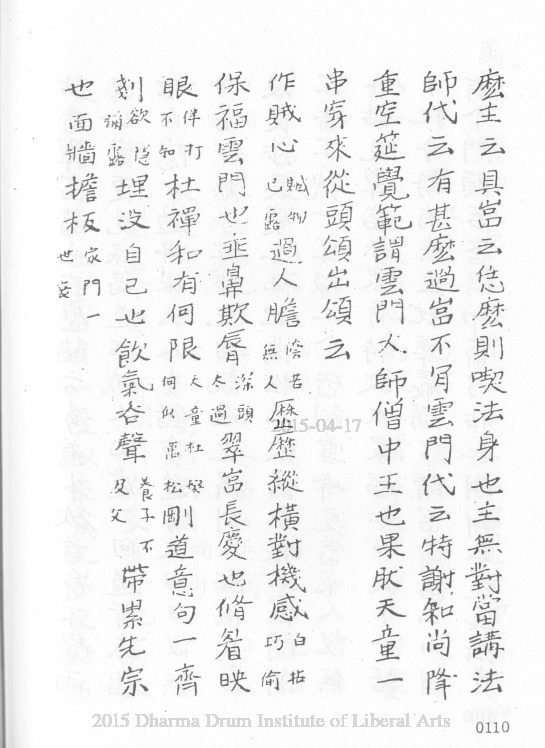 麼主云具嵓云恁麼則喫法身也主無對當講法
師代云有甚麼過嵓不肎雲門代云特謝和尚降
重空筵覺範謂雲門大師僧中王也果肰天童一
串穿來從頭頌出頌云
作賊心賊物已露過人膽傍若無人歷歷縱橫對機感白拈巧偷
保福雲門也垂鼻欺脣深頭太過翠嵓長慶也脩眉映
眼伴打不知杜禪和有何限天童杜撰何似萬松剛道意句一齊
剗欲隱彌露埋没自己也飲氣吞聲養子不及父帶累先宗
也面牆擔板家門一世衰
2015-04-17
2015 Dharma Drum Institute of Liberal Arts
0110